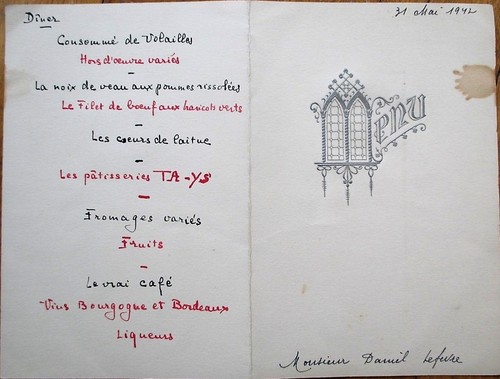 Dîner
Consommé de Volailles
Hors d'œuvre variés
La noix de veau aux pommes rissolées
Le Filet de bœuf aux haricots verts
Les cœurs de laitue
Les pâtisseries TA-YS
Fromages variés
Fruits
Le vrai café
Vins Bourgogne et Bordeaux
Liqueurs
31 Mai 1942
Menu
Monsieur Daniel Lefevre